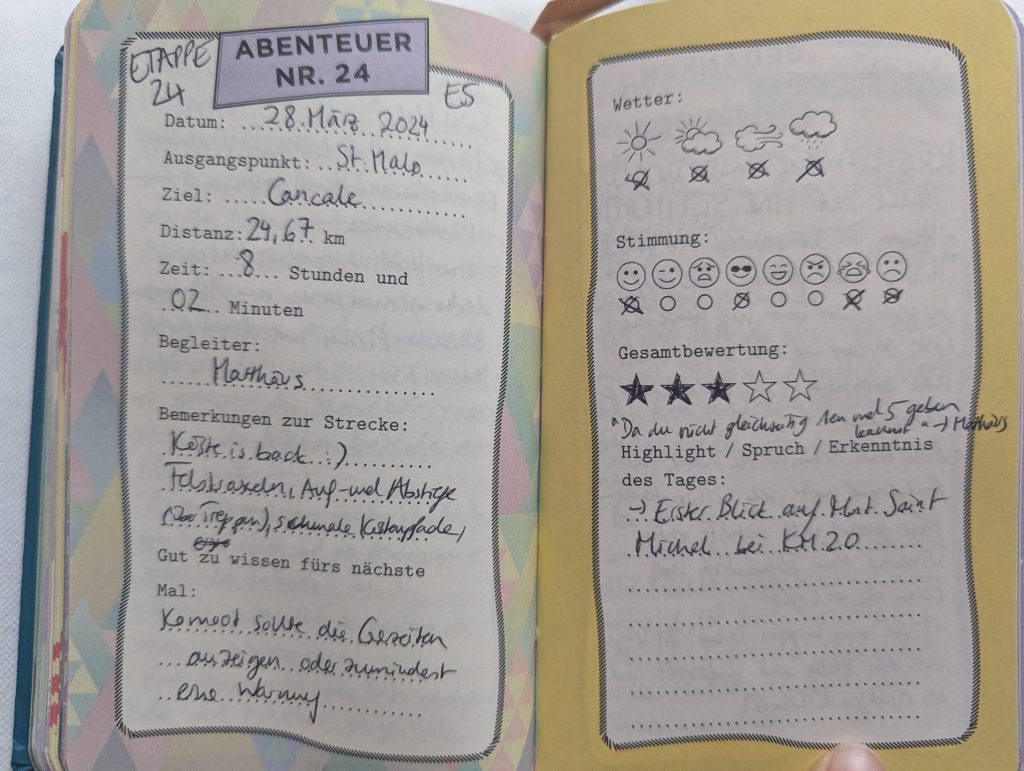 ETAPPE
24
ABENTEUER
NR. 24
ES
Datum: 28. März 2024
Ausgangspunkt: St. Malo
Ziel: Cancale
Distanz: 24,67 km
Zeit: 8 Stunden und
02 Minuten
Begleiter:
Matthäus
Bemerkungen zur Strecke:
Küste is back :)
Felskraxeln, Auf- und Abstiege
(über Treppen), schmale Küstenpfade,
Gut zu wissen fürs nächste
Mal:
Komoot sollte die Gezeiten
anzeigen oder zumindest
eine Warnung
Wetter:
Stimmung:
Gesamtbewertung:
"Da du nicht gleichzeitig 1en und 5 geben
kannst" → Matthäus
Highlight / Spruch / Erkenntnis
des Tages:
→ Erster Blick auf Mont Saint
Michel bei KM 20